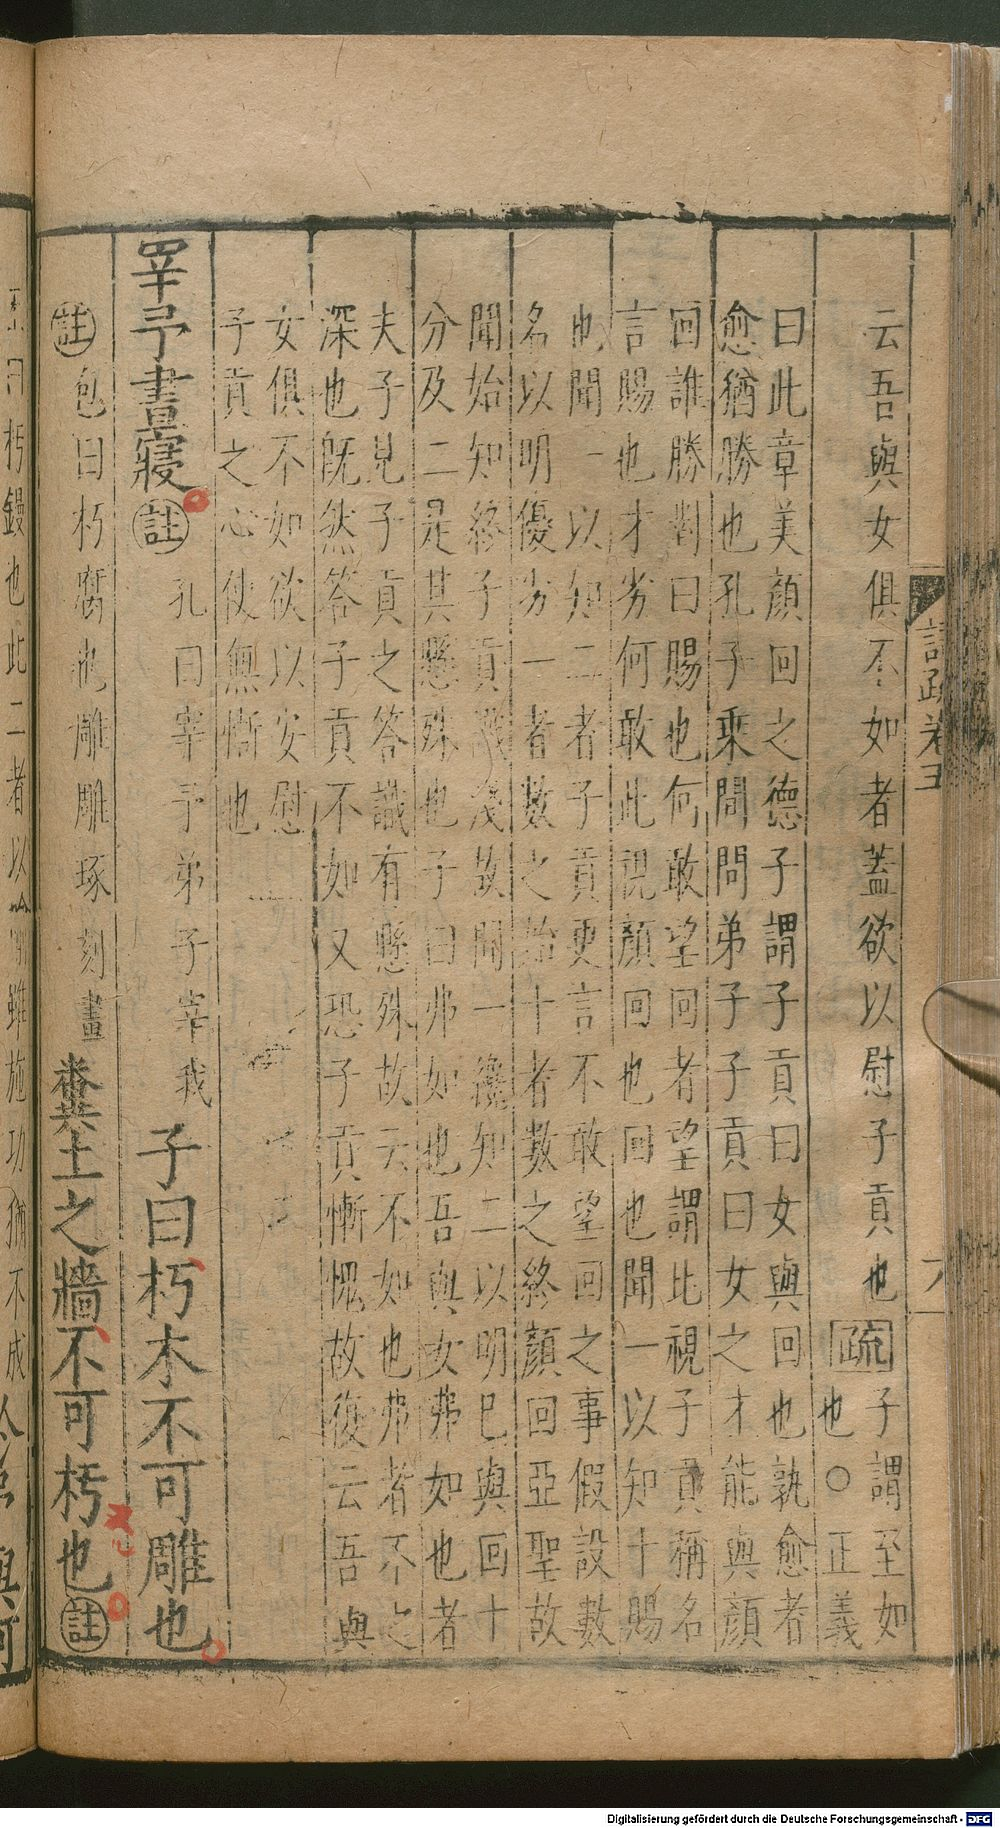 云吾與女俱不如者蓋欲以慰子貢也
疏
子謂至如
也○正義
曰此章美顏回之德子謂子貢曰女與回也孰愈者
愈猶勝也孔子乘間問弟子子貢曰女之才能與顏
回誰勝對曰賜也何敢望回者望謂比視子貢稱名
言賜也才劣何敢此視顏回也回也聞一以知十賜
也聞一以知二者子貢更言不敢望回之事假設數
名以明優劣一者數之始十者數之終顏回亞聖故
聞始知終子貢識淺故聞一纔知二以明已與回十
分及二是其懸殊也子曰弗如也吾與女弗如也者
夫子見子貢之答識有懸殊故云不如也弗者不之
深也既然答子貢不如又恐子貢慚愧故復云吾與
女俱不如欲以安慰
子貢之心使無慚也
宰予晝寢
註
孔曰宰予弟子宰我
子曰朽木不可雕也
註
包曰朽腐也雕雕琢刻畫
糞土之牆不可杇也
註
曰杇鏝也此二者以喻雖施功猶不成
註疏卷五
Digitalisierung gefördert durch die Deutsche Forschungsgemeinschaft - DFG